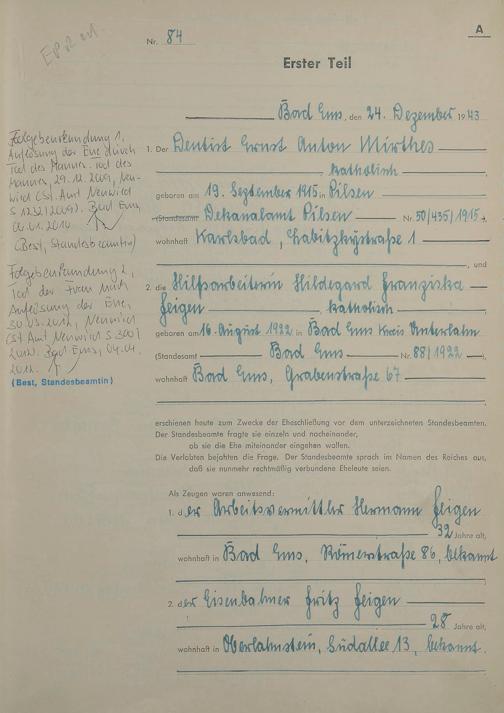 A
Nr. 84
Erster Teil
Bad Ems, den 24. Dezember 1943
1. Der Dentist Ernst Anton Mirthes
katholisch
geboren am 19. September 1915 in Pilsen
(Standesamt Dekanalamt Pilsen Nr. 50/435/1915
wohnhaft Karlsbad, Gabitzkystraße 1
, und
2. die Hilfsarbeiterin Hildegard Franziska
Feigen, katholisch
geboren am 16. August 1922 in Bad Ems Kreis Unterlahn
(Standesamt Bad Ems Nr. 88/1922),
wohnhaft Bad Ems, Grabenstraße 67
erschienen heute zum Zwecke der Eheschließung vor dem unterzeichneten Standesbeamten.
Der Standesbeamte fragte sie einzeln und nacheinander,
ob sie die Ehe miteinander eingehen wollen.
Die Verlobten bejahten die Frage. Der Standesbeamte sprach im Namen des Reiches aus,
daß sie nunmehr rechtmäßig verbundene Eheleute seien.
Als Zeugen waren anwesend:
1. der Arbeitsvermittler Hermann Feigen
32 Jahre alt,
wohnhaft in Bad Ems, Römerstraße 86, bekannt
2. der Eisenbahner Fritz Feigen
28 Jahre alt,
wohnhaft in Oberlahnstein, Südallee 13, bekannt.
Folgebeurkundung 1,
Auflösung der Ehe durch
Tod des Mannes. Tod des
Mannes, 29.12.2009, Neu-
wied (St. Amt Neuwied
S 1232/2009). Bad Ems,
.01.2010
(Best, Standesbeamtin)
Folgebeurkundung 2,
Tod der Frau nach
Auflösung der Ehe,
30.03.2012, Neuwied
(St. Amt Neuwied S 300/
2012. Bad Ems, 04.04.
2012.
(Best, Standesbeamtin)